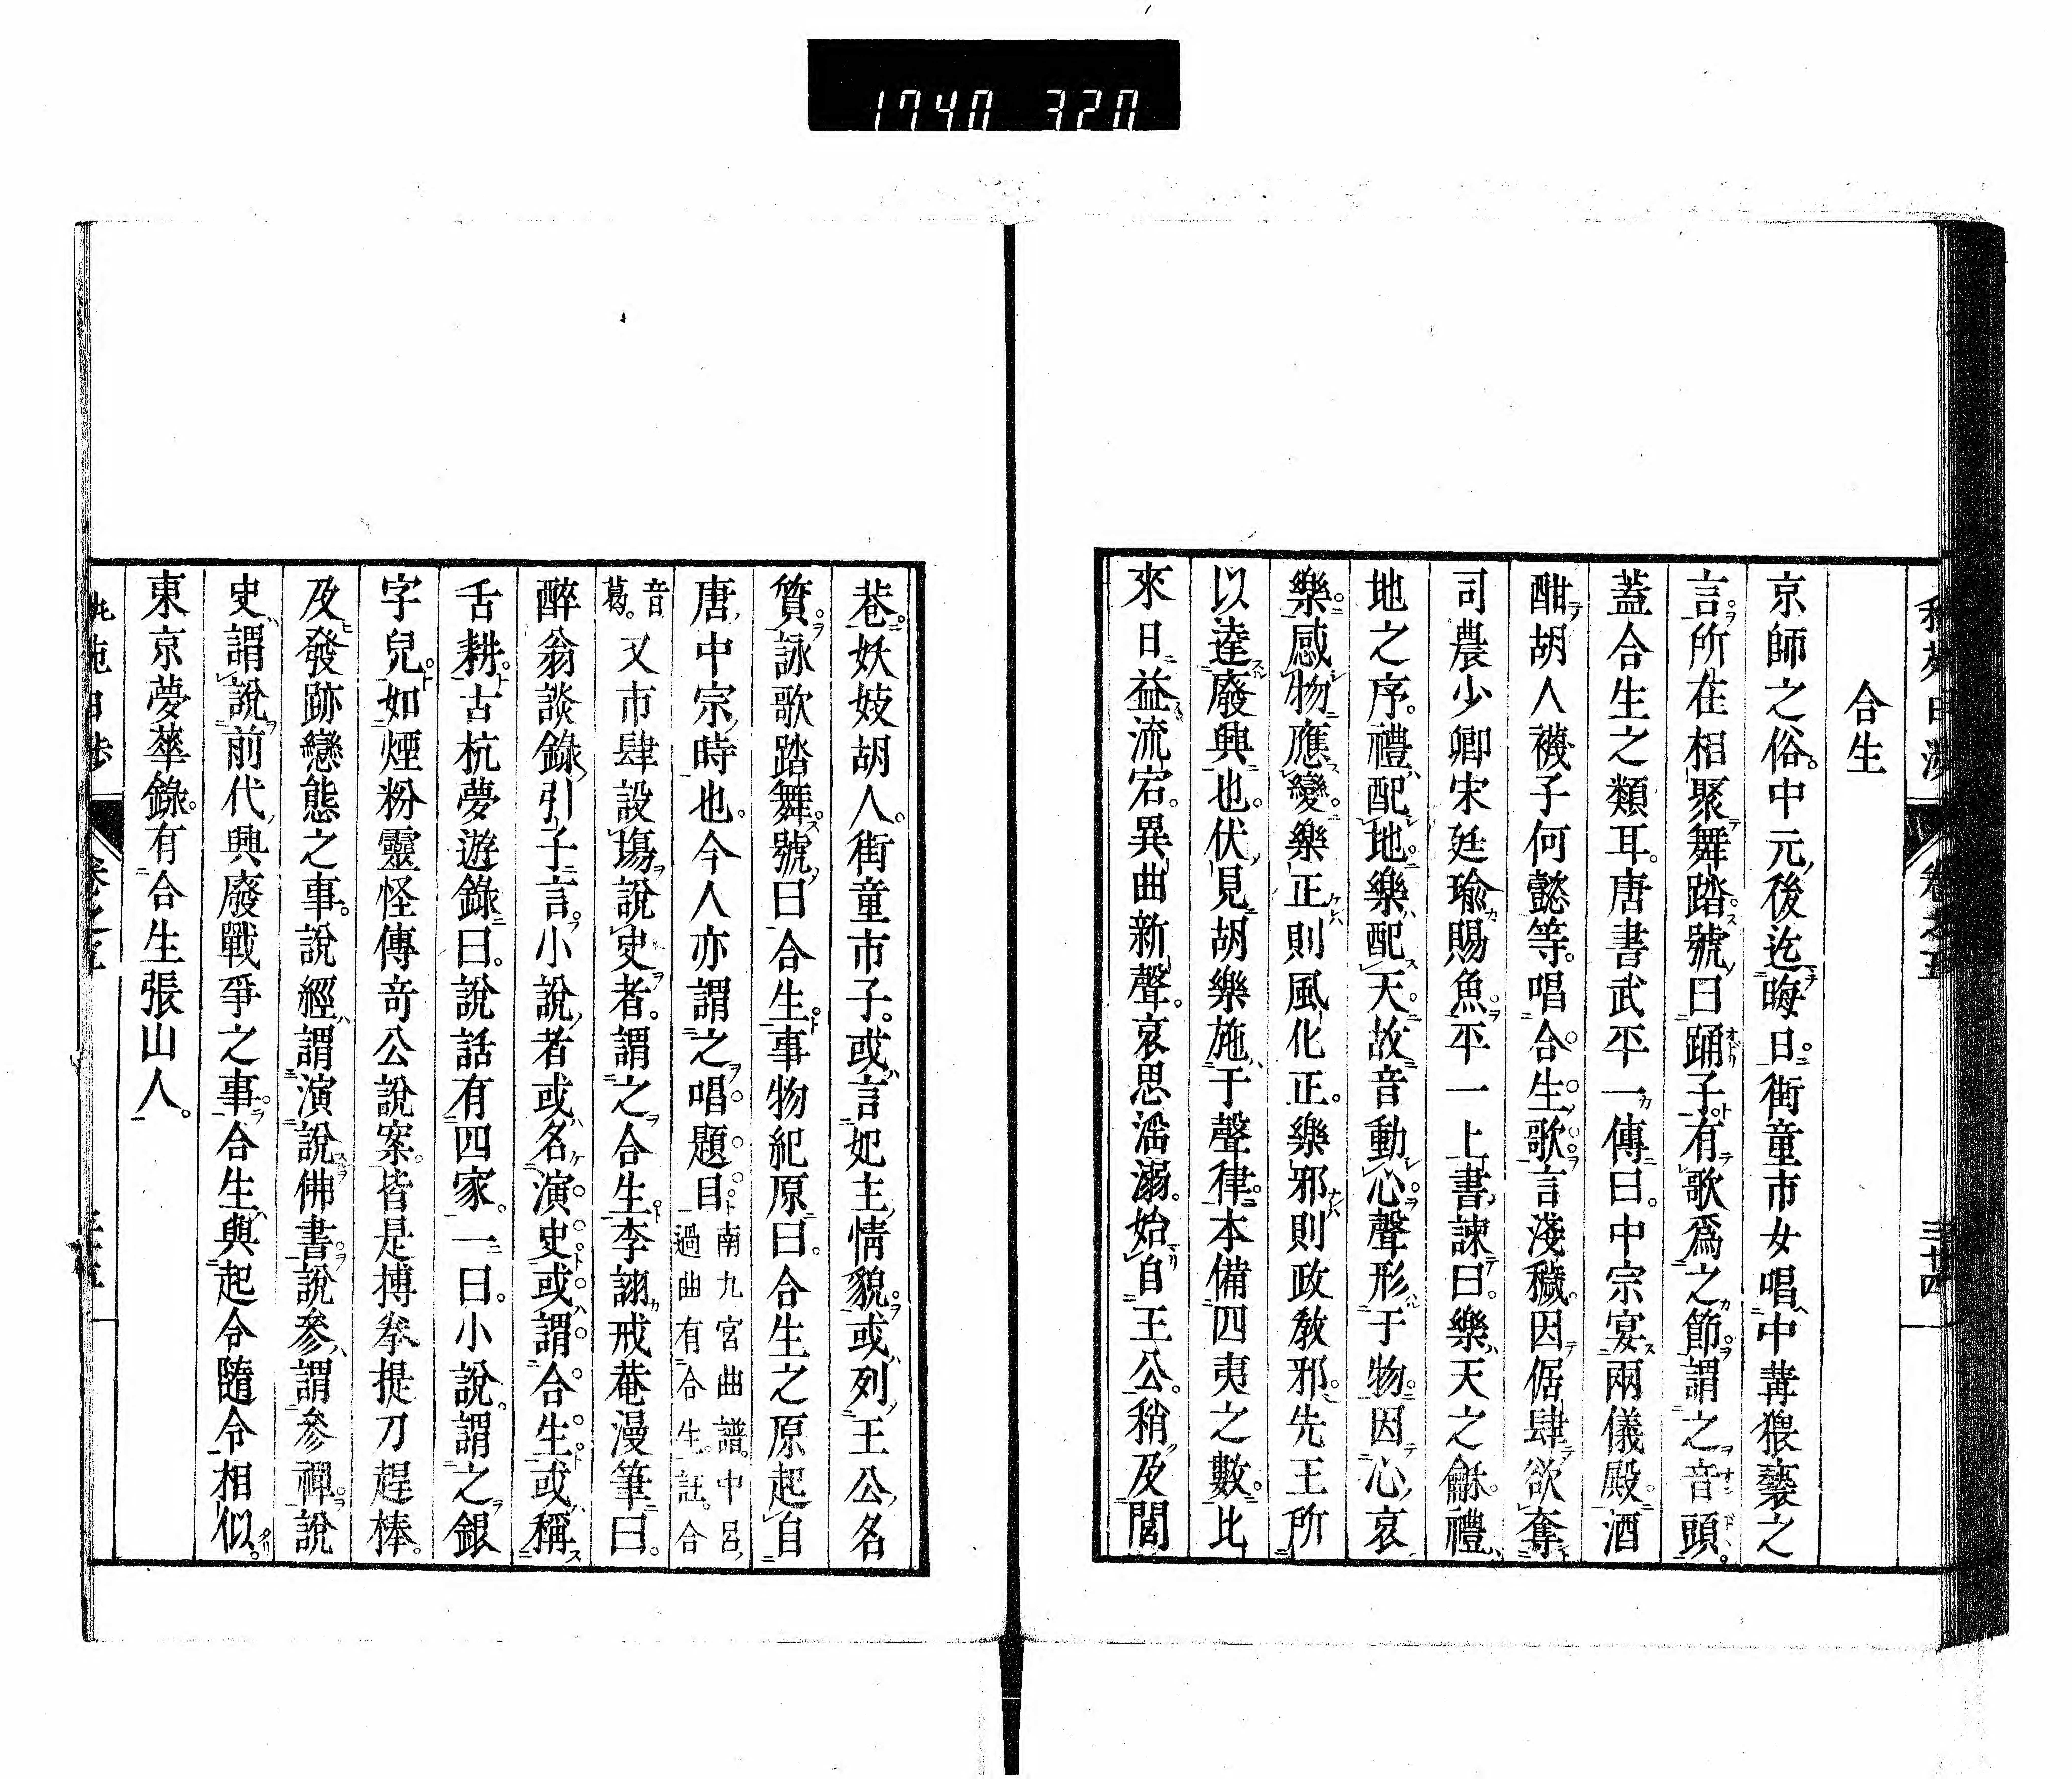 1740 320
合生
京師之俗。中元後迄晦日。街童市女唱中冓猥褻之
言。所在相聚舞踏。號曰踊子。有歌爲之節。謂之音頭。
蓋合生之類耳。唐書武平一傳曰。中宗宴兩儀殿。酒
酣。胡人襪子何懿等。唱合生。歌言淺穢。因倨肆欲奪
司農少卿宋廷瑜賜魚。平一上書諫曰。樂天之龢。禮
地之序。禮配地。樂配天。故音動心。聲形于物。因心哀
樂。感物應變。樂正則風化正。樂邪則政敎邪。先王所
以達廢興也。伏見胡樂施于聲律。本備四夷之數。比
來日益流宕。異曲新聲。哀思滛溺。始自王公。稍及閭
巷。妖妓胡人。街童市子。或言妃主情貌。或列王公名
質。詠歌踏舞。號曰合生。事物紀原曰。合生之原起自
唐中宗時也。今人亦謂之唱題目。南九宮曲譜。中呂
過曲有合生。註。合
音葛。又市肆設塲說史者。謂之合生。李詡戒菴漫筆曰。
醉翁談錄引子言。小說者或名演史。或謂合生。或稱
舌耕。古杭夢遊錄曰。說話有四家。一曰。小說。謂之銀
字兒。如煙粉靈怪傳奇公說案。皆是搏拳提刀趕棒。
及發跡戀態之事。說經謂演說佛書。說參謂參禪。說
史謂說前代興廢戰爭之事。合生與起令隨令相似。
東京夢華錄。有合生張山人。
卷之五
三十四